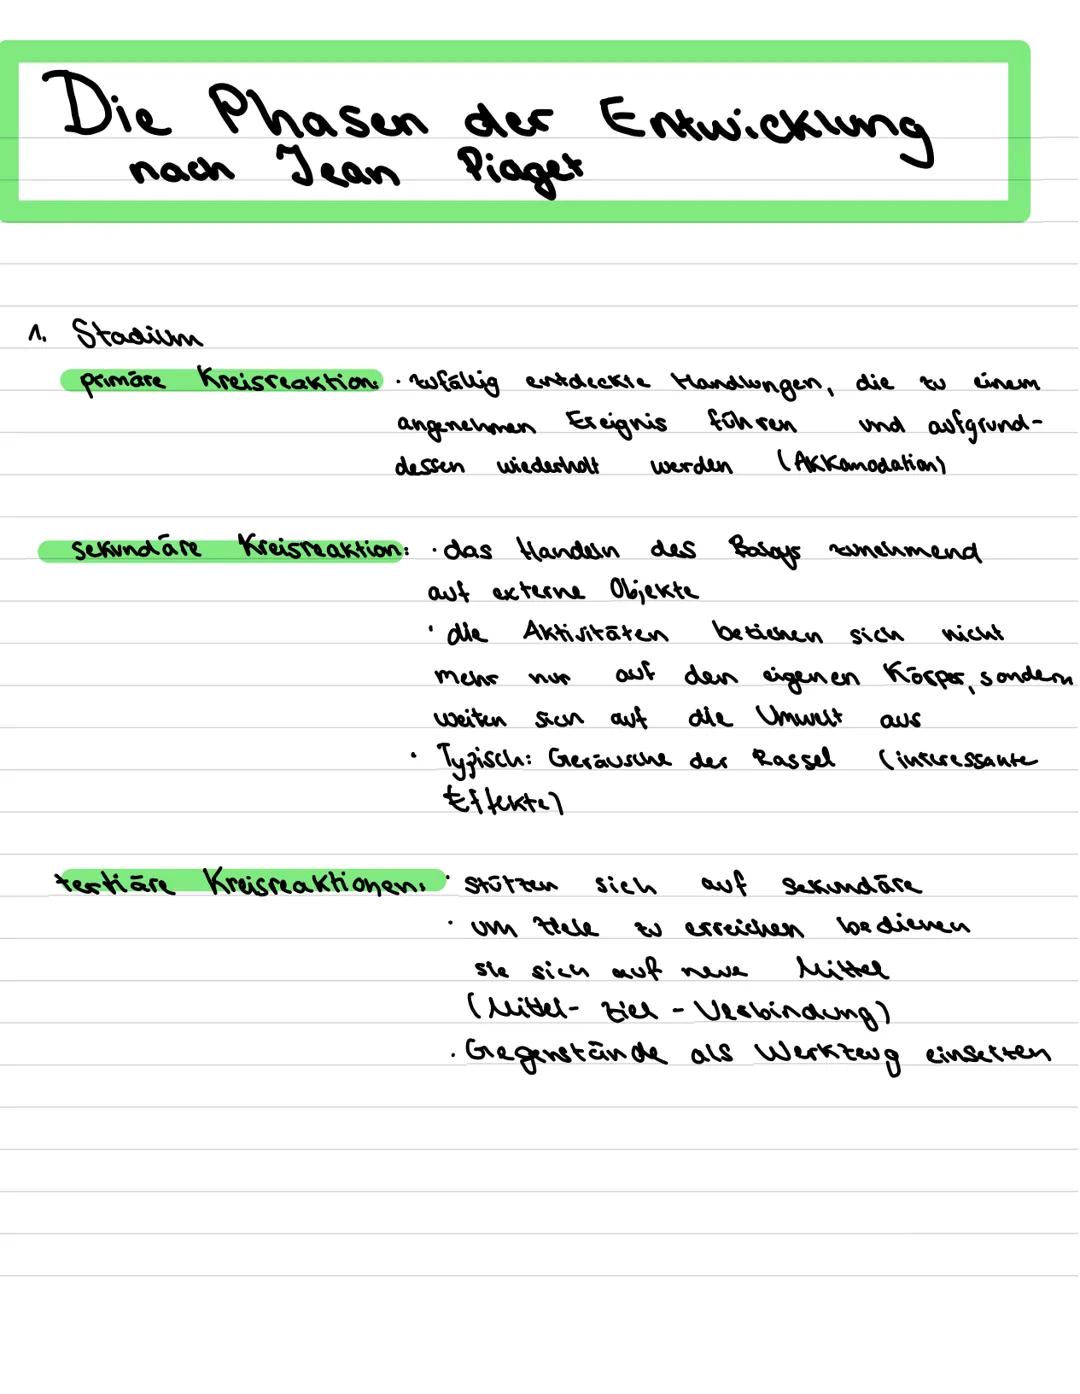 Die Phasen der Entwicklung
nach Jean Piaget
1. Stadium
primäre Kreisreaktion: · zufällig entdeckte Handlungen, die zu einem
angenehmen Ereignis führen und aufgrund-
dessen wiederholt werden (Akkamodation)
sekundäre Kreisreaktion: · das Handeln des Babys zunehmend
auf externe Objekte
· die Aktivitäten beziehen sich nicht
mehr nur auf den eigenen Körper, sondern
weiten sich auf die Umwelt aus
· Typisch: Geräusche der Rassel (interessante
Effekte)
tertiäre Kreisreaktionen: · stützen sich auf sekundäre
· um Ziele zu erreichen bedienen
sie sich auf neue Mittel
(Mittel-Ziel-Verbindung)
· Gegenstände als Werkzeug einsetzen